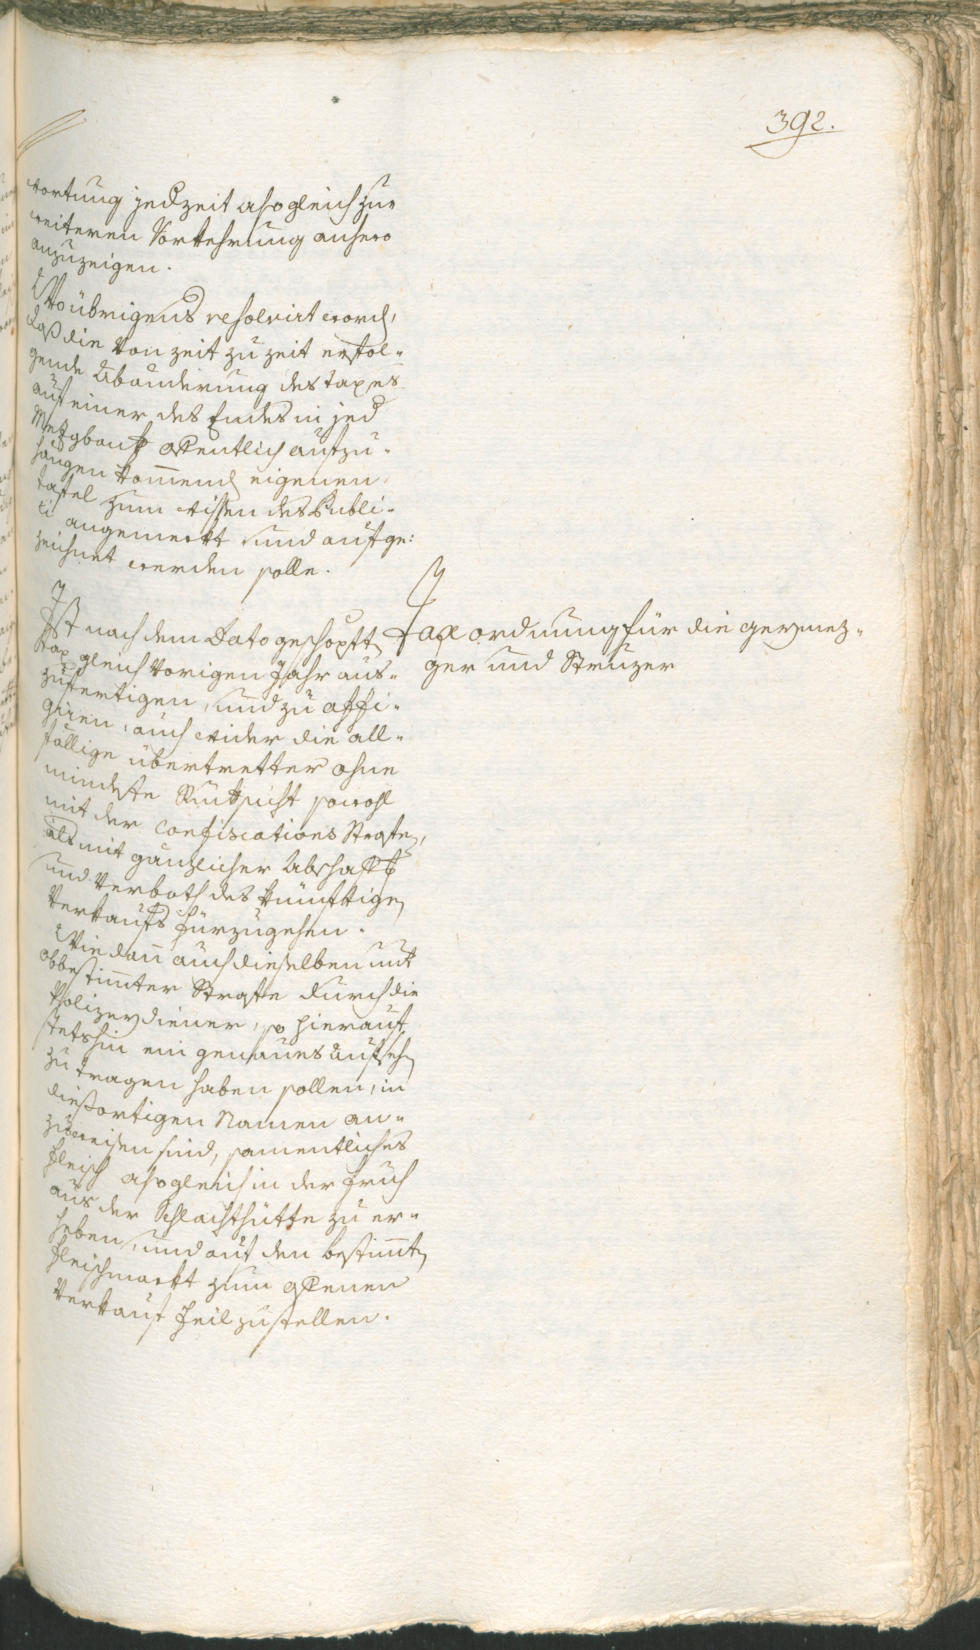 392.
wortung jedzeit alsogleich zur
weiteren Vorkehrung anhero
anzuzeigen.
Wo übrigens resolvirt word,
daß die von zeit zu zeit erfol-
gende Abänderung des taxes
auf einer des Endes in jed
Metzgbankh öffentlich aufzu-
hängen kom̄end eigenen
tafel zum wissen des Publi-
ci angemerkt und aufge:
zeichnet werden solle.
Ist nach dem Dato geschöpften
tax gleich vorigen Jahr aus-
zufertigen, und zu affi-
giren, auch wider die all-
fällige übertretter ohne
mindeste Rücksicht sowohl
mit der Confiscations Straffe,
als mit gänzlicher Abschaff
und Verboth des künfftigen
Verkaufs fürzugehen.
Wie dan̄ auch dieselben mit
obbestim̄ter Straffe durch die
Polizeydiener, so hierauf
stetshin ein genaues aufsehen
zu tragen haben sollen, in
diesortigen Namen an-
zuweisen sind, sämentliches
fleisch alsogleich in der fruh
aus der Schlachthütte zu er-
heben, und auf den bestim̄ten
fleischmarkt zum offenen
Verkauf feil zustellen.
Tax ordnung für die geymez-
ger und Strüzer